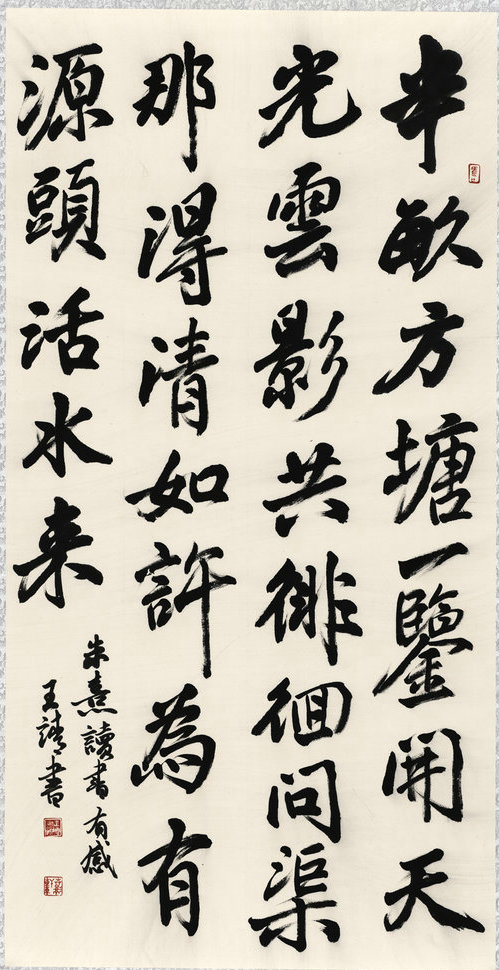 半畝方塘一鑒開天
光雲影共徘徊问渠
那得清如許為有
源頭活水来
朱熹讀書有感
王靖書